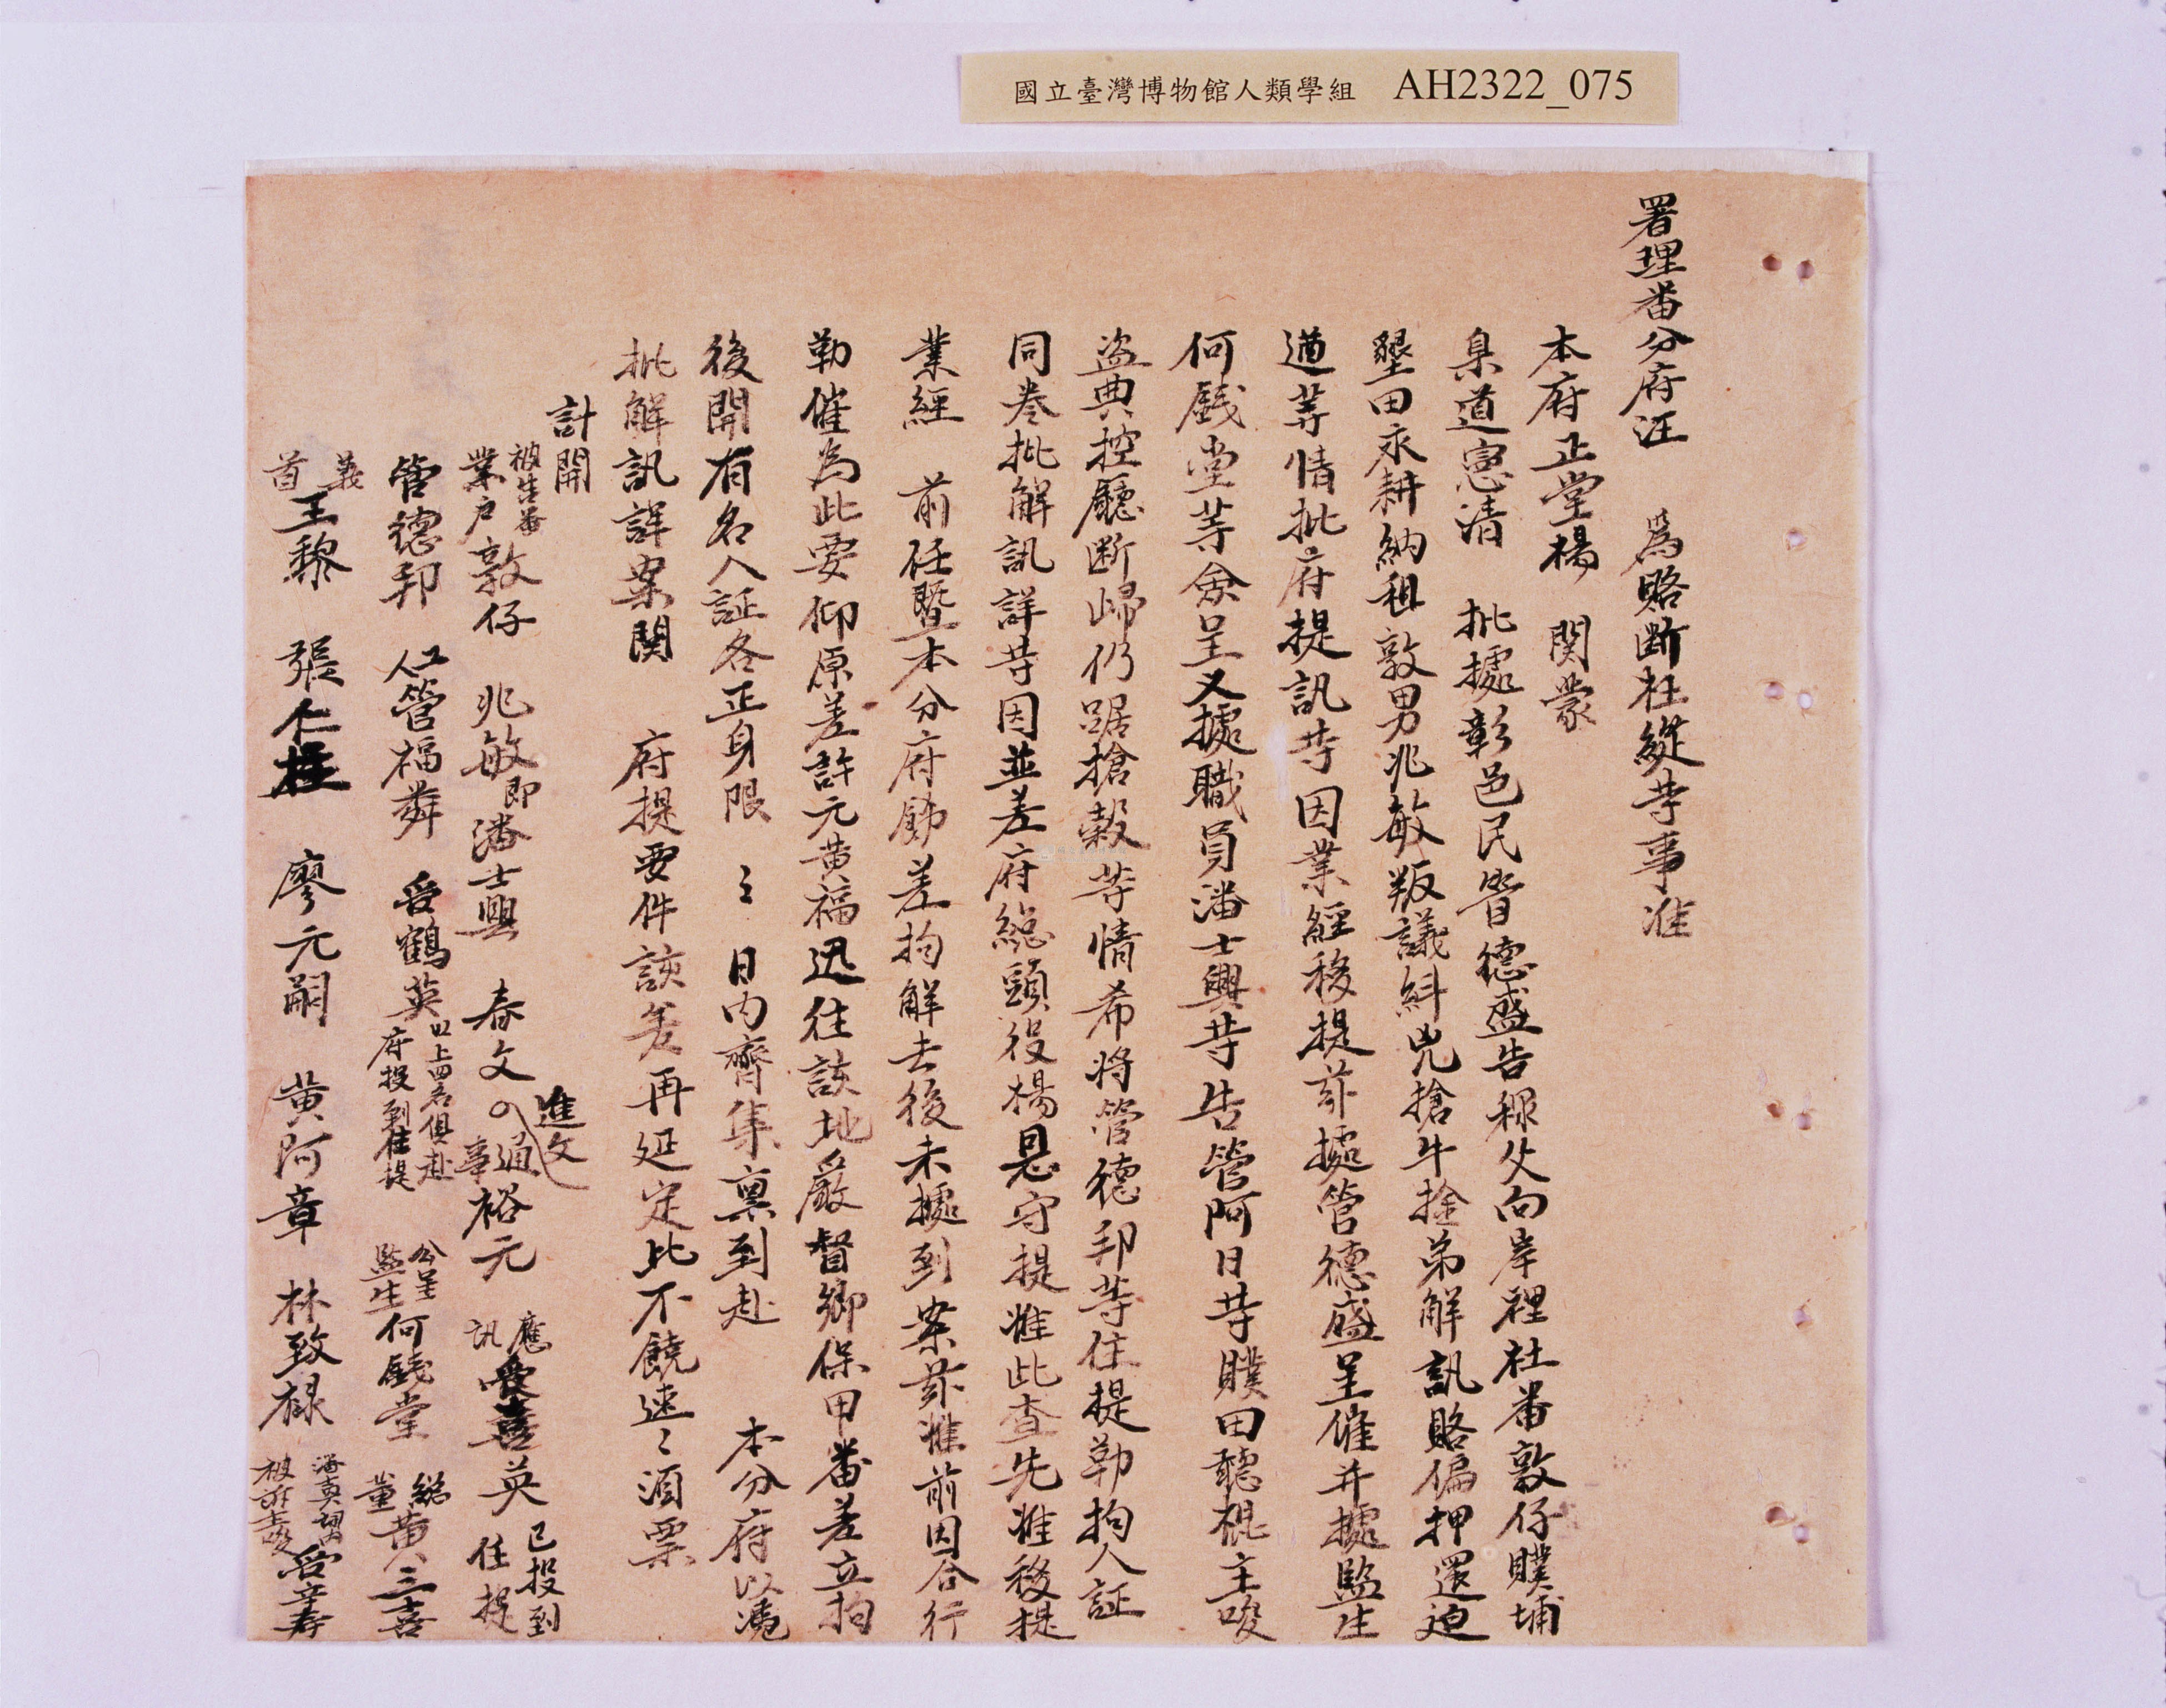 國立臺灣博物館人類學組 AH2322_075
署理番分府汪 為賂断枉縱等事准
本府正堂楊 関蒙
臬道憲清 批據彰邑民管德盛告稱父向岸裡社番敦仔贌埔
墾田永耕納租敦男兆敏叛議糾兇搶牛捡弟解訊賂偏押還迫
遒等情批府提訊等因業經移提茲據管德盛呈催并據監生
何錢堂等僉呈又據職員潘士興等告管阿日等贌田聽棍主唆
盗典控廳断歸仍踞搶穀等情希将管德邦等住提勒拘人証
同卷批解訊詳等因並差府総頭役楊恩守提准此查先准移提
業經 前任暨本分府飭差拘解去後未據到案茲准前因合行
勒催為此要仰原差許元黄福迅往該地嚴督鄉保甲番差立拘
後開有名人証各正身限 三 日内齊集禀到赴 本分府以凴
批解訊詳案関 府提要件該差再延定比不饒速〻須票
計開
被生番業户敦仔 兆敏即潘士興 春文 進文 通事裕元 應訊 英 已投到住提
管德邦 工人管福舜 受鶴英以上四名俱赴府投到住提 公呈監生何錢堂 総董黄三喜
義首王黎 張仁桂 廖元嗣 黄阿章 林致禄